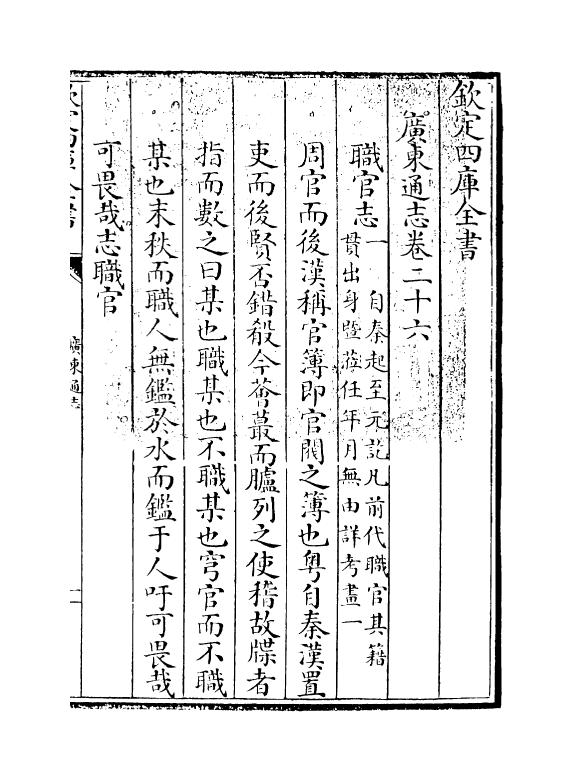 欽定四庫全書
廣東通志卷二十六
職官志一 自秦起至元訖凡前代職官其籍
貫出身暨蒞任年月無由詳考畫一
周官而後漢稱官簿即官閥之簿也粤自秦漢置
吏而後賢否錯殽今薈蕞而臚列之使稽故牒者
指而數之曰某也職某也不職某也穹官而不職
某也末秩而職人無鑑於水而鑑于人吁可畏哉
可畏哉志職官
廣東通志